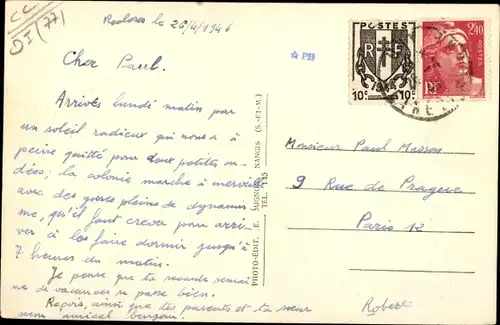 CC
DI (77)
Recloses le 26/4/1946
PB
POSTES
RF
10c 10c
2f40
POSTES
RF
Cher Paul.
Arrivés lundi matin par
un soleil radieux qui nous a
peine quitté pour deux petites on-
dées; la colonie marche à merveille
avec des gosses pleins de dynamis-
me, qu'il faut crever pour arri-
ver à les faire dormir jusqu'à
7 heures du matin.
Je pense que ta seconde semai-
ne de vacances se passe bien.
Reçois, ainsi que tes parents et ta sœur
mon amical bonjour.
Robert
PHOTO-ÉDIT. E. MIGNON, NANGIS (S.-ET-M.)
TÉL. 115
Monsieur Paul Masson
9 Rue de Prague
Paris 12